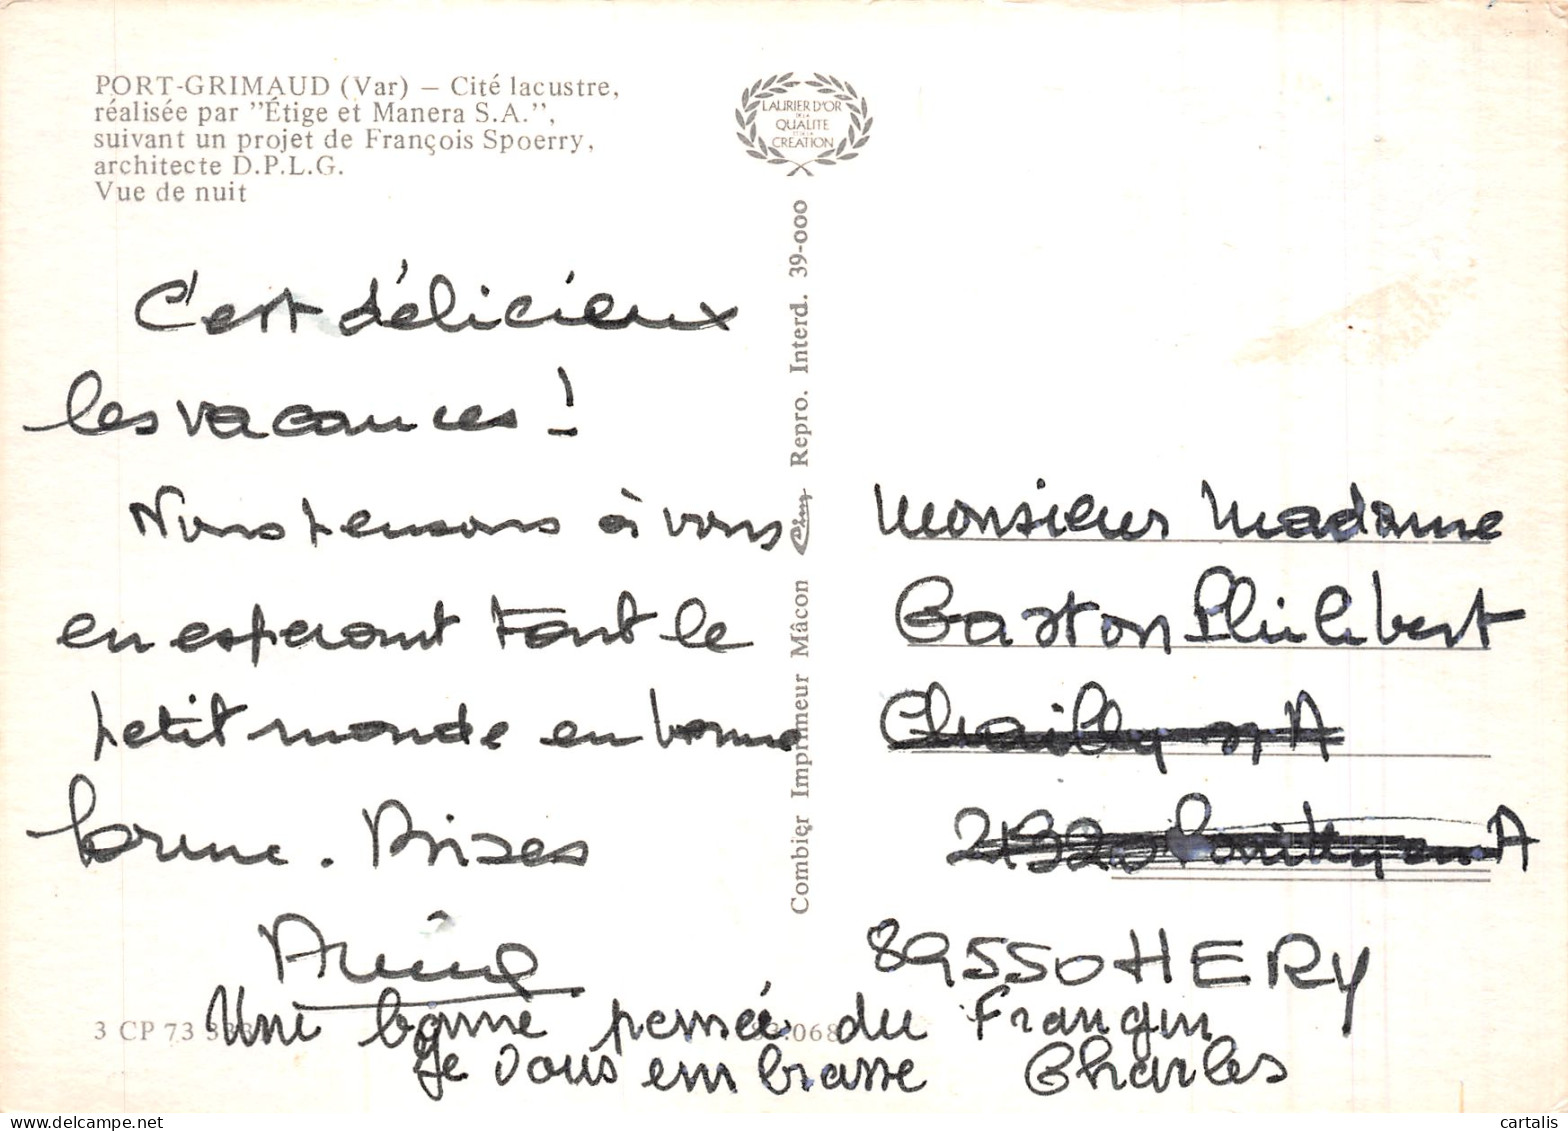 PORT-GRIMAUD (Var) — Cité lacustre,
réalisée par "Étige et Manera S.A.",
suivant un projet de François Spoerry,
architecte D.P.L.G.
Vue de nuit
LAURIER D'OR
DE LA
QUALITE
ET DE LA
CREATION
C'est délicieux
les vacances !
Nous pensons à vous
en esperant tout le
petit monde en bonne
forme. Bises
Combier Imprimeur Mâcon Repro. Interd. 39-000
Monsieur Madame
Gaston Philibert
Chailly sur A
21320 Pouilly en A
89550 HERY
3 CP 73
Une bonne pensée du Frangin
Je vous embrasse Charles
cartalis